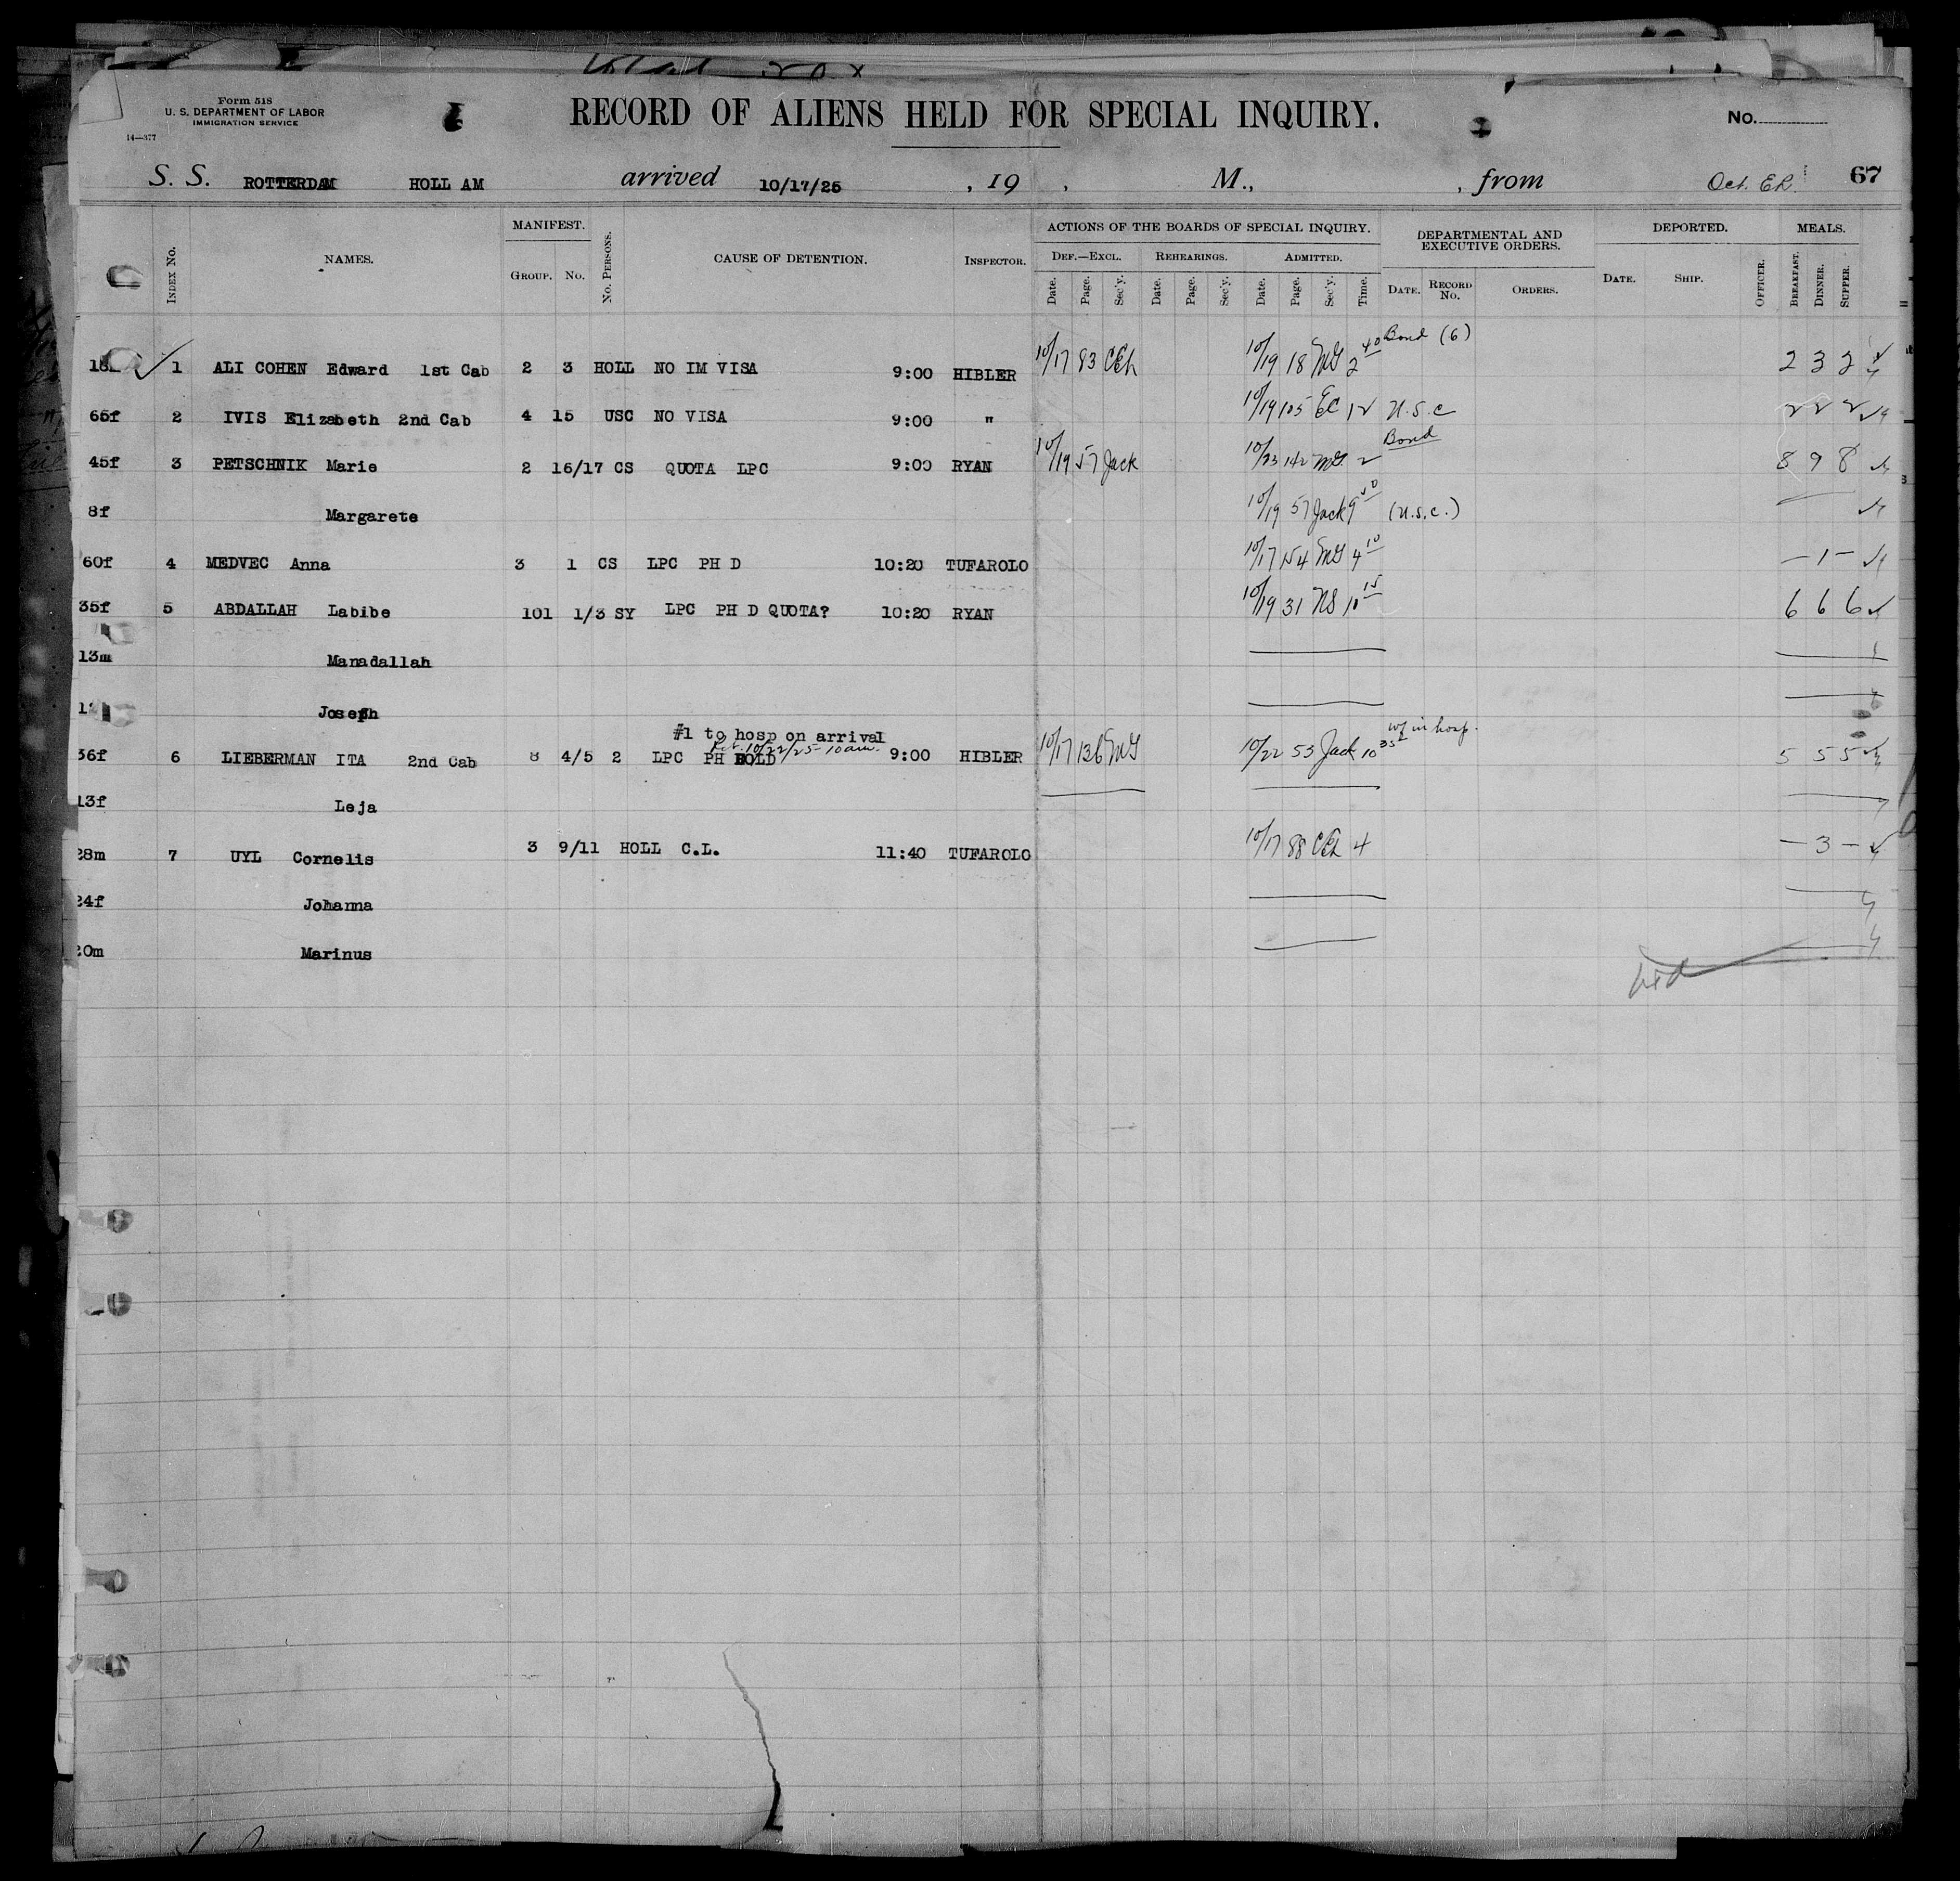 Form 518
U. S. DEPARTMENT OF LABOR
IMMIGRATION SERVICE
14—377
RECORD OF ALIENS HELD FOR SPECIAL INQUIRY.
No.
S. S. ROTTERDAM HOLL AM arrived 10/17/25 , 19 , M., , from Oct. 67
INDEX No. NAMES. MANIFEST. GROUP. No. No. PERSONS. CAUSE OF DETENTION. INSPECTOR. ACTIONS OF THE BOARDS OF SPECIAL INQUIRY. DEF.—EXCL. REHEARINGS. ADMITTED. DEPARTMENTAL AND EXECUTIVE ORDERS. DEPORTED. MEALS.
Date. Page. Sec'y. Date. Page. Sec'y. Date. Page. Sec'y. Time. DATE. RECORD No. ORDERS. DATE. SHIP. OFFICER. BREAKFAST. DINNER. SUPPER.
1 ALI COHEN Edward 1st Cab 2 3 HOLL NO IM VISA 9:00 HIBLER 10/17 83 CEh 10/19 18 MG 2 40 Bond (6) 2 3 2
65f 2 IVIS Elizabeth 2nd Cab 4 15 USC NO VISA 9:00 " 10/19 105 EC 12 U.S.C 2 2 2
45f 3 PETSCHNIK Marie 2 16/17 CS QUOTA LPC 9:00 RYAN 10/19 57 Jack 10/23 142 MG. 2 Bond 8 9 8
8f Margarete 10/19 57 Jack 9 (U.S.C.)
60f 4 MEDVEC Anna 3 1 CS LPC PH D 10:20 TUFAROLO 10/17 154 MG 4 10 — 1 —
35f 5 ABDALLAH Labibe 101 1/3 SY LPC PH D QUOTA? 10:20 RYAN 10/19 31 NS 10 15 6 6 6
13m Manadallah
Joseph
#1 to hosp on arrival
Ret. 10/22/25 10 am.
36f 6 LIEBERMAN ITA 2nd Cab 8 4/5 2 LPC PH HOLD 9:00 HIBLER 10/17 136 MG 10/22 53 Jack 10 35 in hosp. 5 5 5
13f Leja
28m 7 UYL Cornelis 3 9/11 HOLL C.L. 11:40 TUFAROLO 10/17 88 CEh 4 — 3 —
24f Johanna
20m Marinus